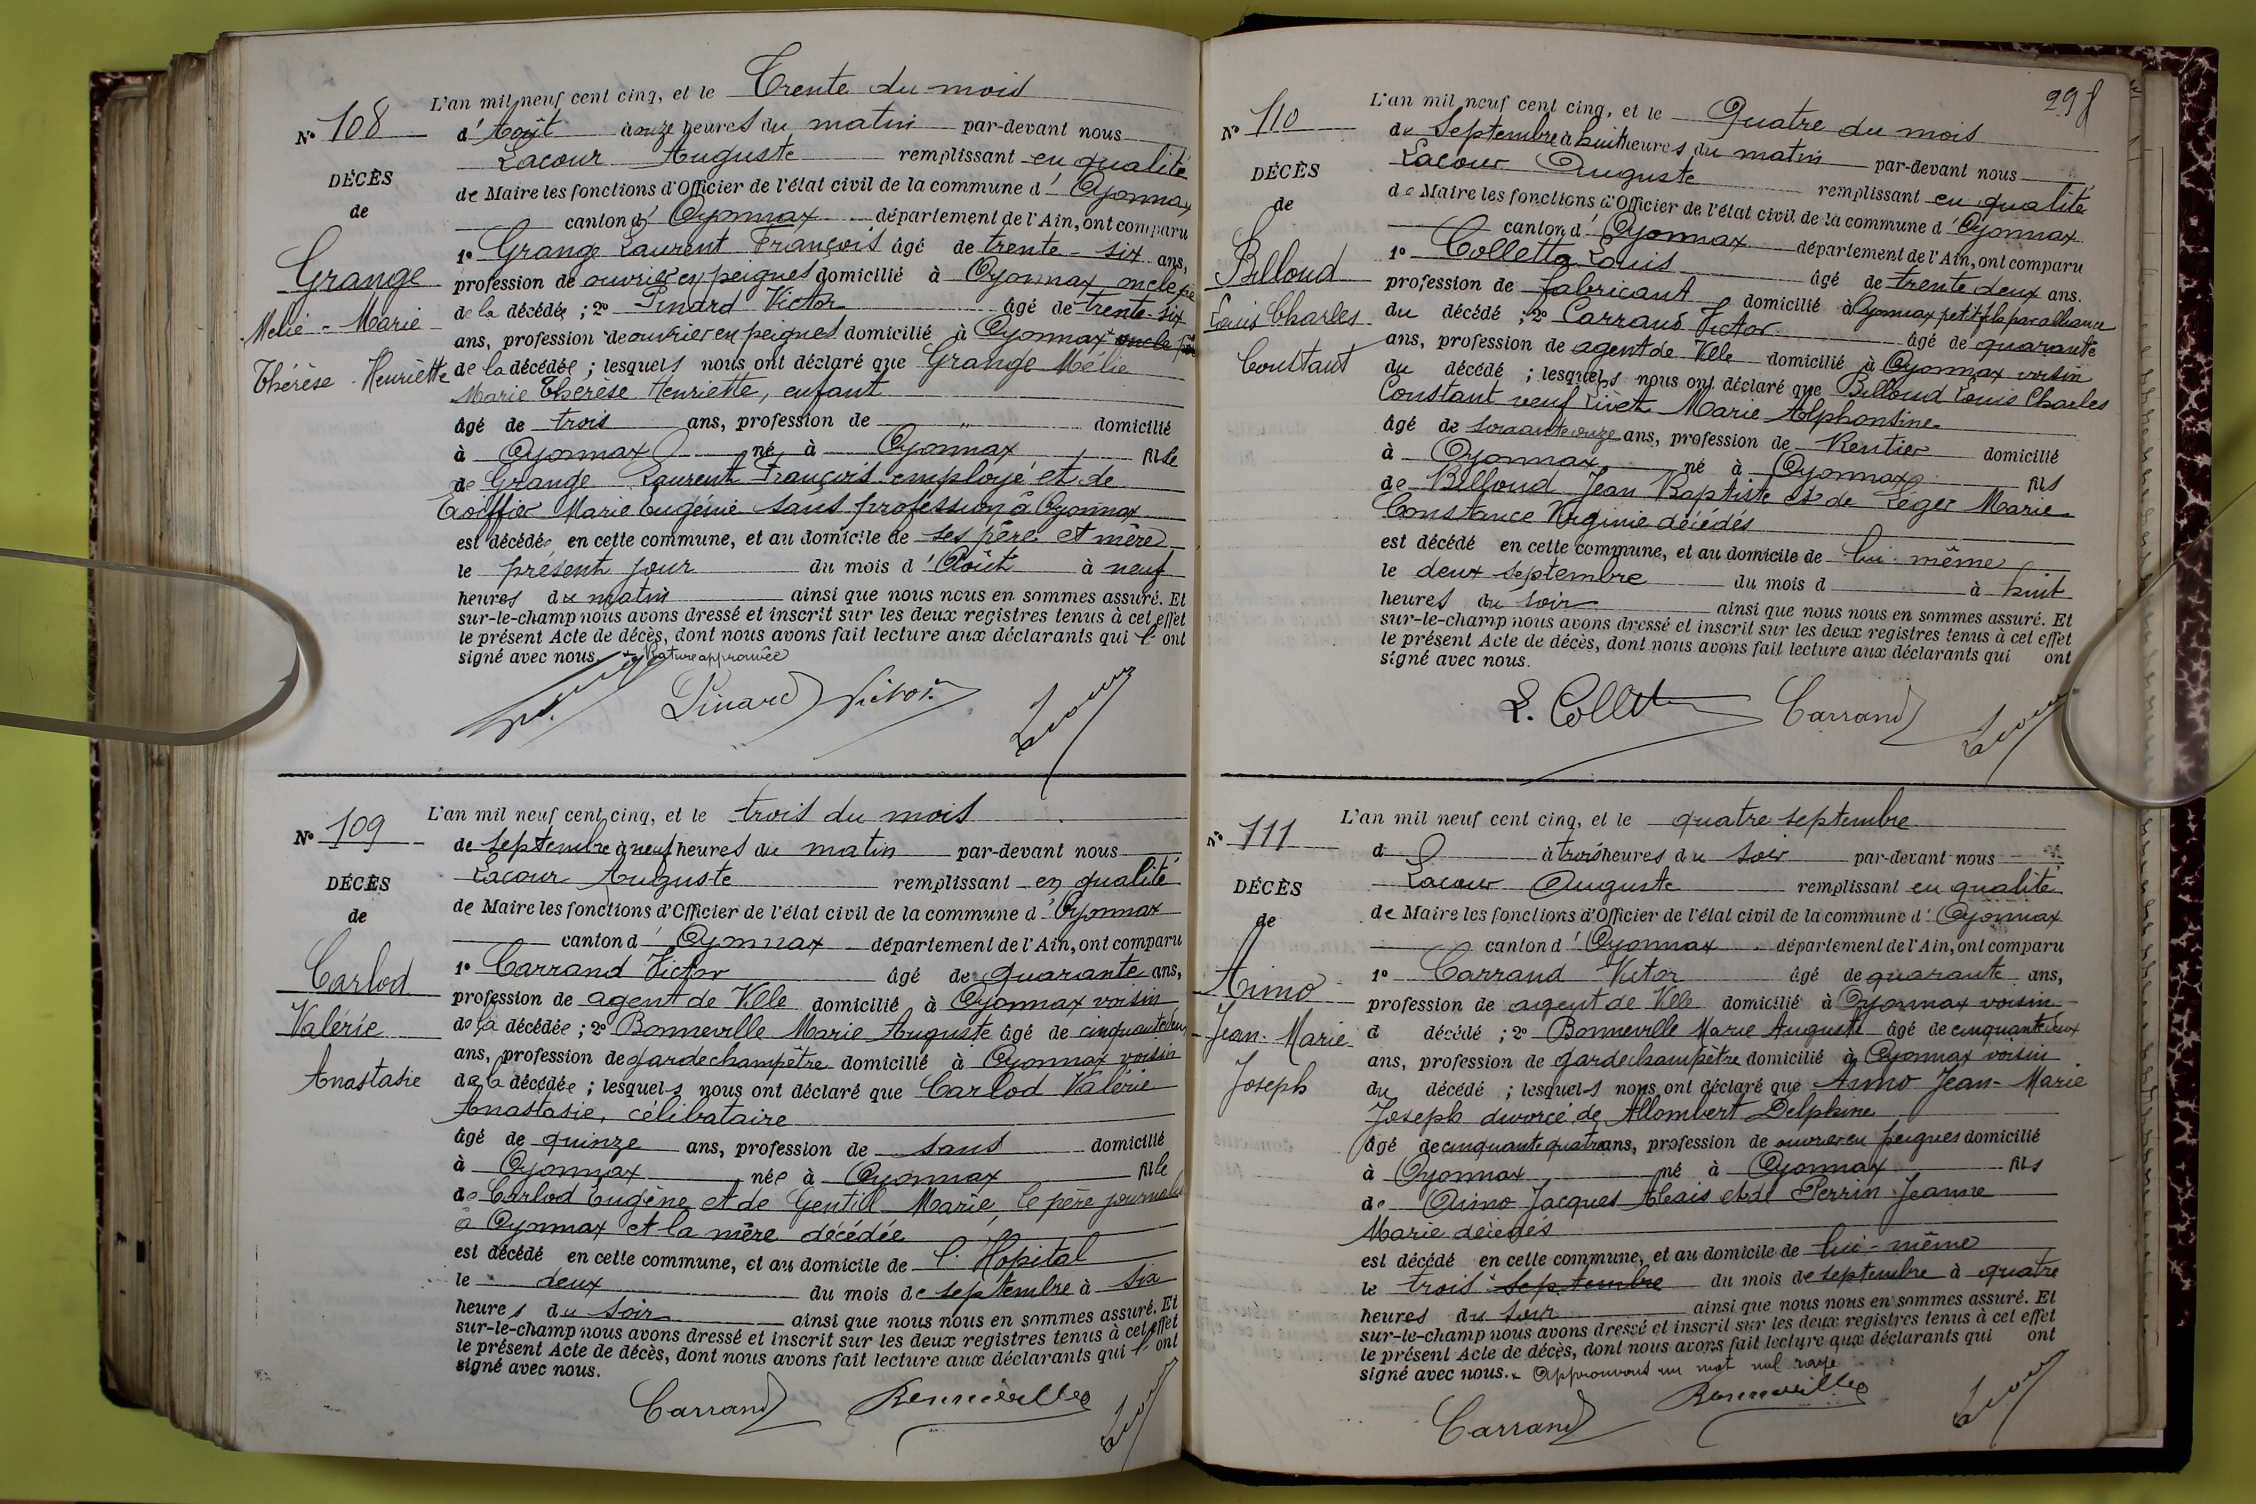 N° 108
DÉCÈS
de
Grange
Mélie - Marie
Thérèse Henriette
L'an mil neuf cent cinq, et le Trente du mois
d' Août à onze heures du matin par-devant nous
Lacour Auguste remplissant en qualité
de Maire les fonctions d'Officier de l'état civil de la commune d' Oyonnax
canton d' Oyonnax département de l'Ain, ont comparu
1° Grange Laurent François âgé de trente-six ans,
profession de ouvrier en peignes domicilié à Oyonnax,
de la décédée ; 2° Pinard Victor âgé de trente-six
ans, profession de ouvrier en peignes domicilié à Oyonnax oncle
de la décédée ; lesquels nous ont déclaré que Grange Mélie
Marie Thérèse Henriette, enfant
âgé de trois ans, profession de " domicilié
à Oyonnax né à Oyonnax fille
de Grange Laurent François employé et de
Coiffier Marie Eugénie sans profession à Oyonnax
est décédée en cette commune, et au domicile de ses père et mère
le présent jour du mois d' Août à neuf
heures du matin ainsi que nous nous en sommes assuré. Et
sur-le-champ nous avons dressé et inscrit sur les deux registres tenus à cet effet
le présent Acte de décès, dont nous avons fait lecture aux déclarants qui l' ont
signé avec nous. Rature approuvée
Pinard Victor
Lacour
N° 109
DÉCÈS
de
Carlod
Valérie
Anastasie
L'an mil neuf cent cinq, et le trois du mois
de septembre à neuf heures du matin par-devant nous
Lacour Auguste remplissant en qualité
de Maire les fonctions d'Officier de l'état civil de la commune d' Oyonnax
canton d' Oyonnax département de l'Ain, ont comparu
1° Carrand Victor âgé de quarante ans,
profession de agent de Ville domicilié à Oyonnax voisin
de la décédée ; 2° Bonneville Marie Auguste âgé de cinquante deux
ans, profession de garde champêtre domicilié à Oyonnax voisin
de la décédée ; lesquels nous ont déclaré que Carlod Valérie
Anastasie, célibataire
âgé de quinze ans, profession de sans domicilié
à Oyonnax née à Oyonnax fille
de Carlod Eugène et de Gentil Marie, le père journalier
à Oyonnax et la mère décédée
est décédé en cette commune, et au domicile de l'Hopital
le deux du mois de septembre à six
heures du soir ainsi que nous nous en sommes assuré. Et
sur-le-champ nous avons dressé et inscrit sur les deux registres tenus à cet effet
le présent Acte de décès, dont nous avons fait lecture aux déclarants qui l' ont
signé avec nous.
Carrand Bonneville Lacour
298
N° 110
DÉCÈS
de
Billoud
Louis Charles
Constant
L'an mil neuf cent cinq, et le Quatre du mois
de Septembre à huit heures du matin par-devant nous
Lacour Auguste remplissant en qualité
de Maire les fonctions d'Officier de l'état civil de la commune d' Oyonnax
canton d' Oyonnax département de l'Ain, ont comparu
1° Colletta Louis âgé de trente deux ans.
profession de fabricant domicilié à Oyonnax petit fils par alliance
du décédé ; 2° Carrand Victor âgé de quarante
ans, profession de agent de Ville domicilié à Oyonnax voisin
du décédé ; lesquels nous ont déclaré que Billoud Louis Charles
Constant veuf Livet Marie Alphonsine
âgé de soixante onze ans, profession de Rentier domicilié
à Oyonnax né à Oyonnax fils
de Billoud Jean Baptiste et de Leger Marie
Constance Virginie décédés
est décédé en cette commune, et au domicile de lui même
le deux septembre du mois d à huit
heures du soir ainsi que nous nous en sommes assuré. Et
sur-le-champ nous avons dressé et inscrit sur les deux registres tenus à cet effet
le présent Acte de décès, dont nous avons fait lecture aux déclarants qui ont
signé avec nous.
L. Collet Carrand Lacour
N° 111
DÉCÈS
de
Aimo
Jean-Marie
Joseph
L'an mil neuf cent cinq, et le quatre septembre
d à trois heures du soir par-devant nous
Lacour Auguste remplissant en qualité
de Maire les fonctions d'Officier de l'état civil de la commune d' Oyonnax
canton d' Oyonnax département de l'Ain, ont comparu
1° Carrand Victor âgé de quarante ans,
profession de agent de Ville domicilié à Oyonnax voisin
d décédé ; 2° Bonneville Marie Auguste âgé de cinquante deux
ans, profession de garde champêtre domicilié à Oyonnax voisin
du décédé ; lesquels nous ont déclaré que Aimo Jean-Marie
Joseph divorcé de Allombert Delphine
âgé de cinquante quatre ans, profession de ouvrier en peignes domicilié
à Oyonnax né à Oyonnax fils
de Aimo Jacques Alais et de Perrin Jeanne
Marie décédés
est décédé en cette commune, et au domicile de lui-même
le trois septembre du mois de septembre à quatre
heures du soir ainsi que nous nous en sommes assuré. Et
sur-le-champ nous avons dressé et inscrit sur les deux registres tenus à cet effet
le présent Acte de décès, dont nous avons fait lecture aux déclarants qui ont
signé avec nous. x Approuvons un mot nul rayé
Carrand Bonneville Lacour